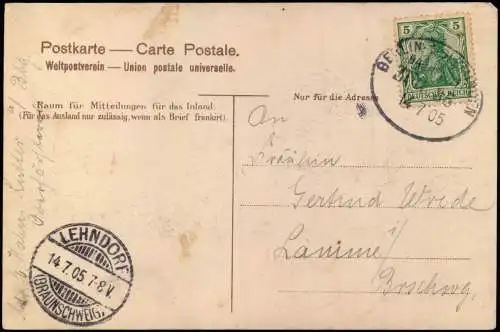 Postkarte — Carte Postale.
Weltpostverein — Union postale universelle.
Raum für Mitteilungen für das Inland.
(Für das Ausland nur zulässig, wenn als Brief frankirt).
Nur für die Adresse
5 5
DEUTSCHES REICH
14 7 05
An
Fräulein
Gertrud Wrede
Lamme i/
Brschwg.
LEHNDORF
14.7.05 7-8 V.
(BRAUNSCHWEIG.)